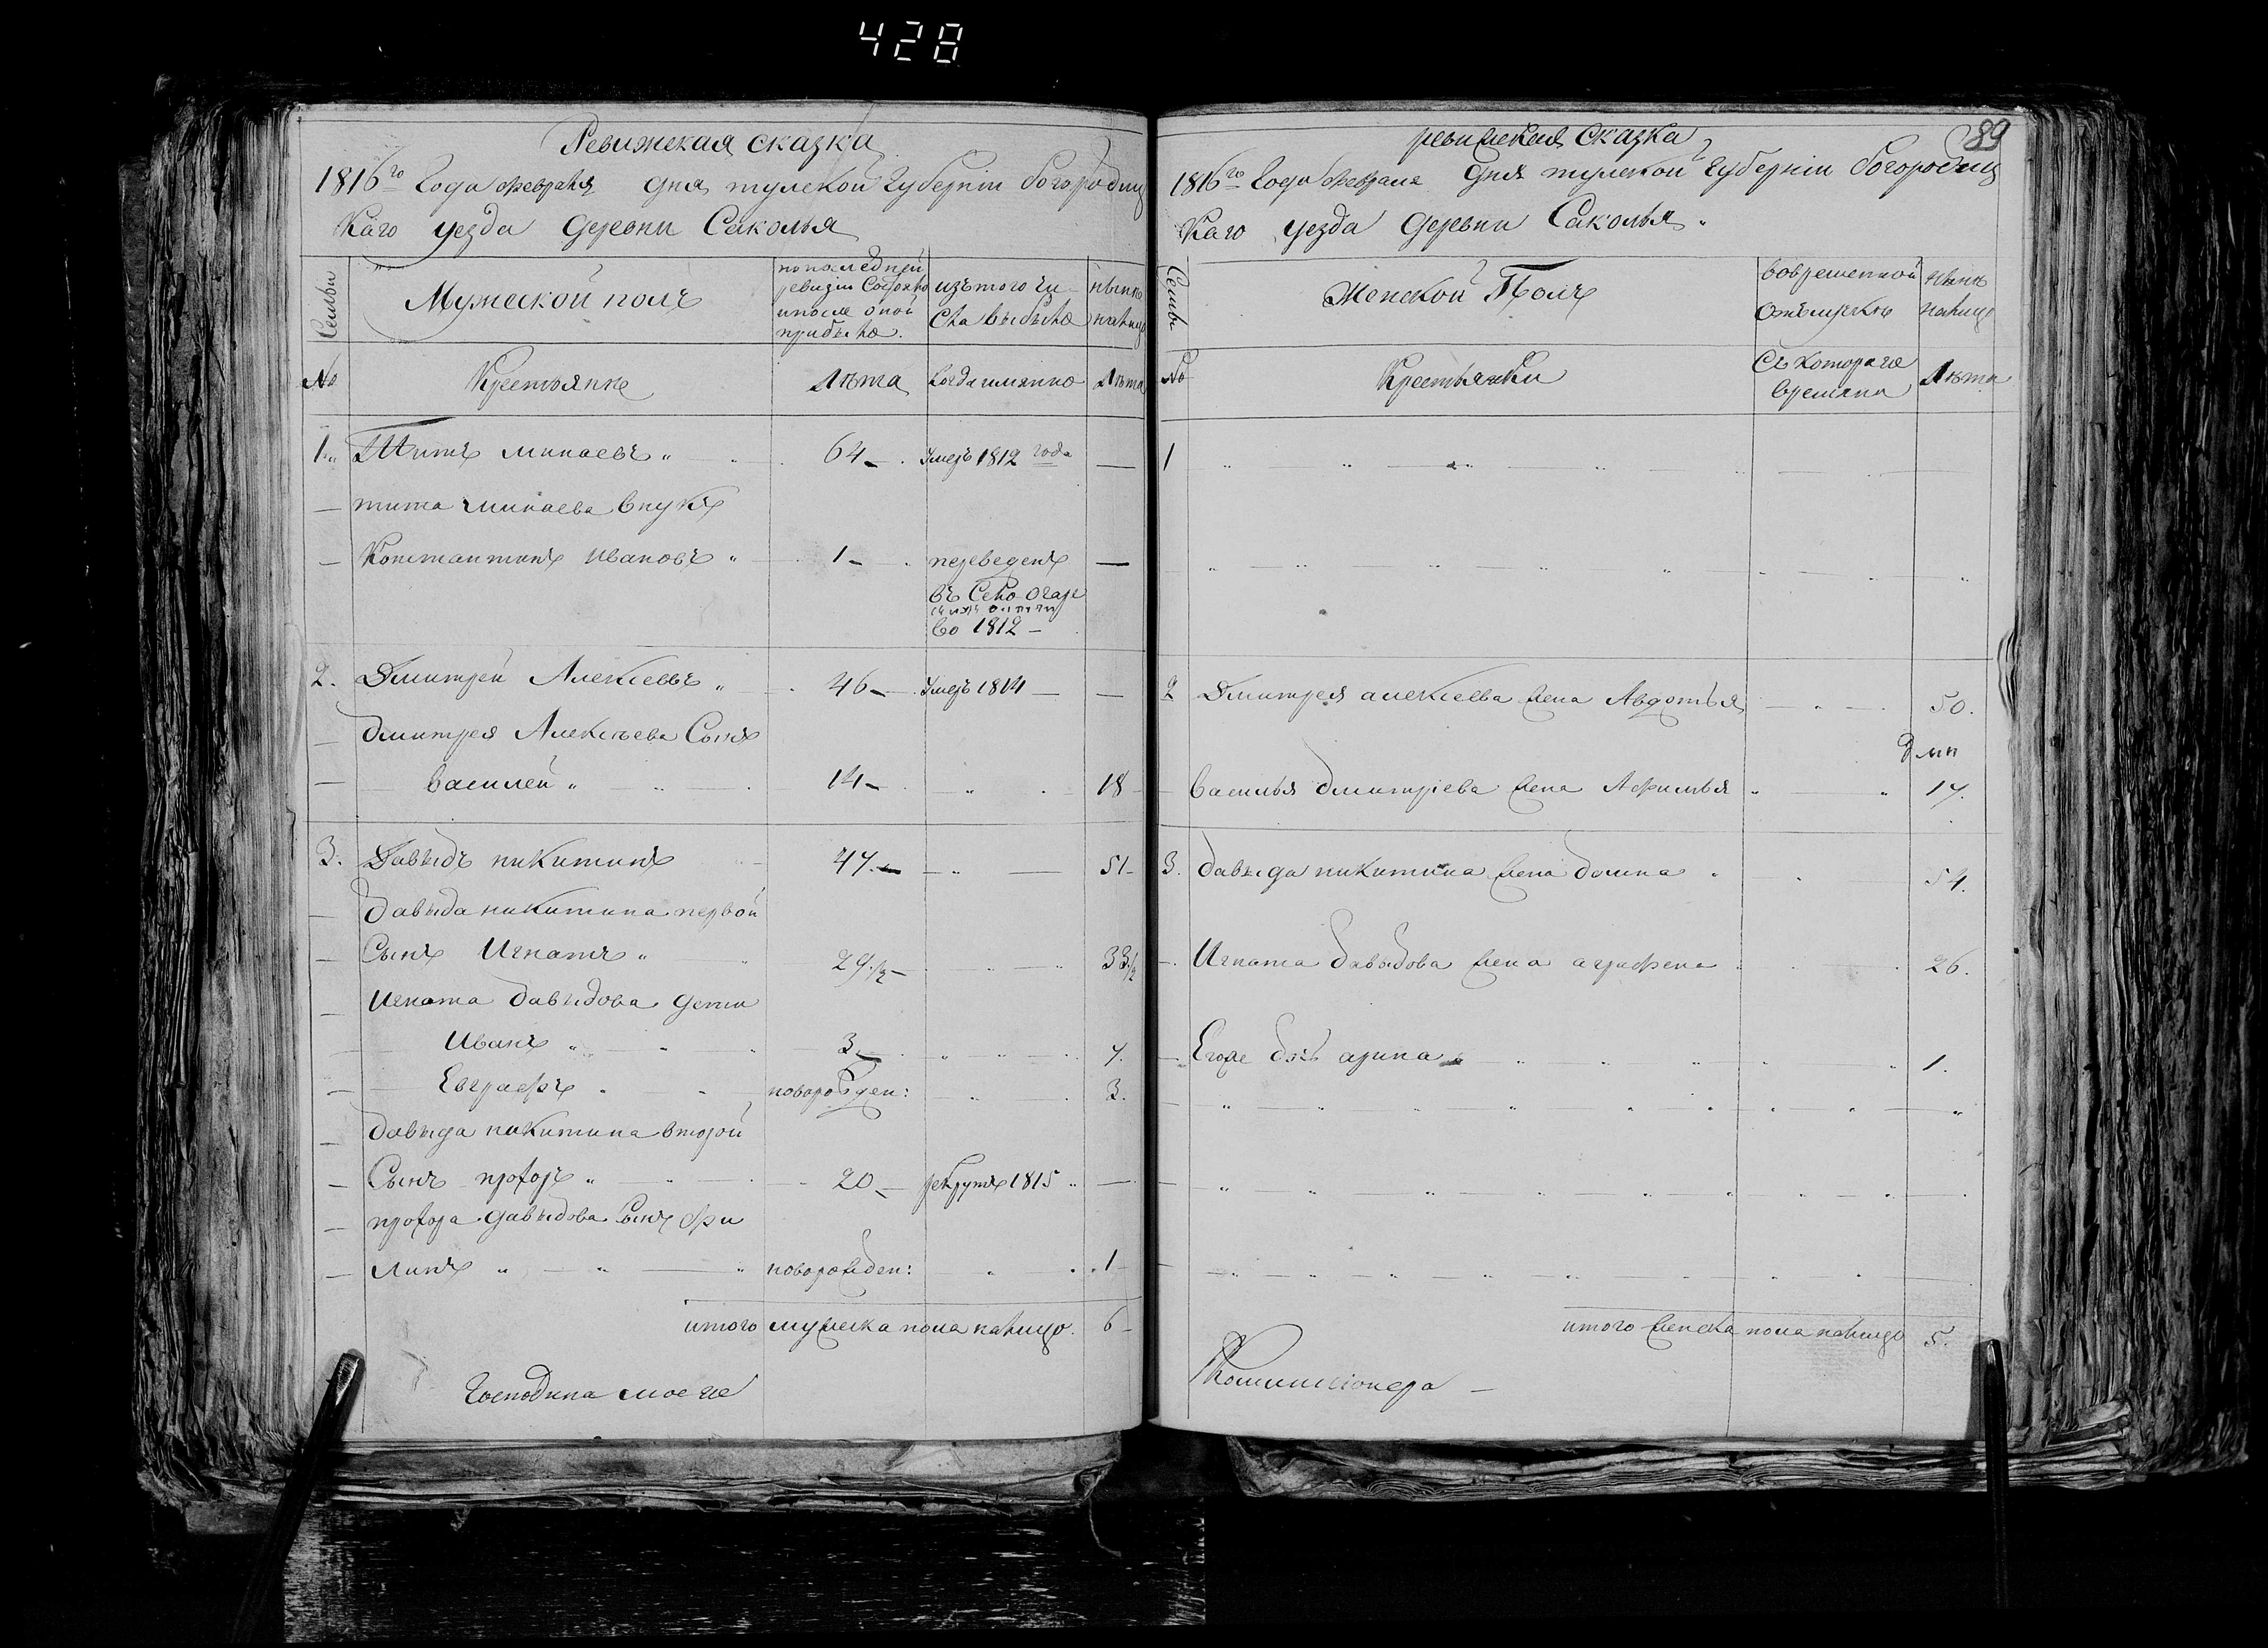 428
Ревижская сказка
1816го Года февраля дня тулской Губернiи богородиц
каго уезда деревни Саколья
Семьи
Мужеской полъ
по последней
ревизiи состояло
и после оной
прибыло.
изъ того чи
сла выбыло
ныне
налицо
№
Крестьяне
Лѣта
Когда имянно
Лѣта
1 Титъ минаевъ 64 Умеръ 1812 года
тита минаева внукъ
Константинъ ивановъ 1 переведенъ
въ село
во 1812
2. Дмитрей Алексеевъ 46 Умеръ 1814
дмитрея Алексѣева Сынъ
василей 14 18
3. Давыдъ никитинъ 47 51
давыда никитина первой
Сынъ Игнатъ 29 1/2 33 1/2
Игната давыдова дети
Иванъ 3 7.
Евграфъ новорожден: 3.
давыда никитина второй
Сынъ прохоръ 20 рекрутъ 1815
прохора давыдова Сынъ фи
липъ новорожден: 1
итого мужеска пола налицо. 6
Господина моего
89
ревижская сказка
1816го Года февраля дня тулской Губернiи богородиц
каго уезда деревни Саколья.
Семьи
Женской Полъ
вовременной
отълучке
ныне
налицо
№
Крестьянки
Съ котораго
времяни
Лѣта
1
2 Дмитрея алексеева жена Авдотья 50.
василья дмитрiева жена Афимья 17.
3. давыда никитина жена домна 54.
Игната давыдова жена аграфена 26.
Егоже дочь арина 1.
итого женска пола налицо 5.
Коммисiонера